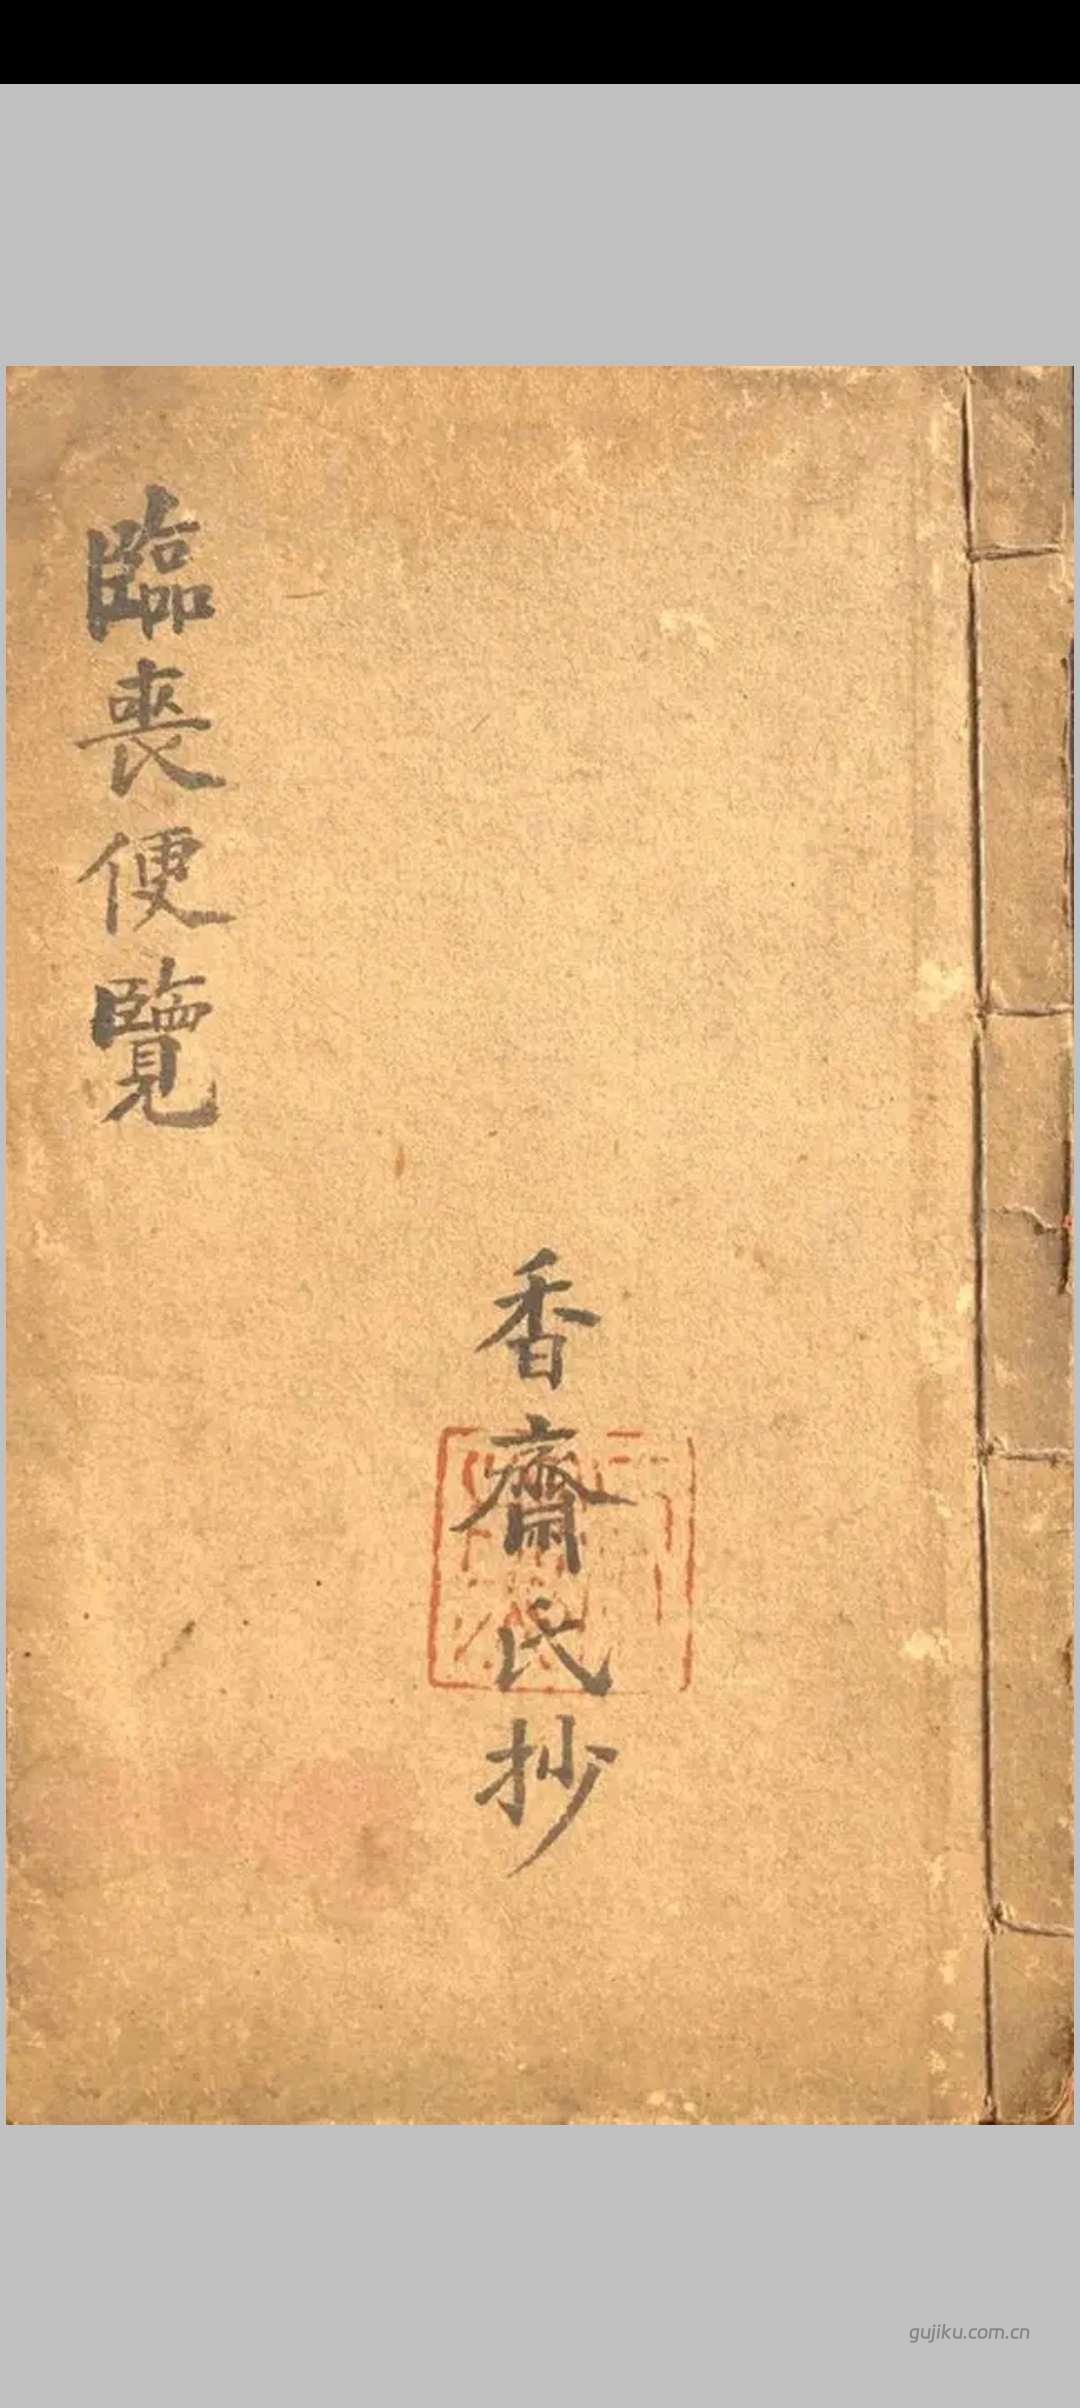 臨喪便覽
香齋氏抄
gujiku.com.cn